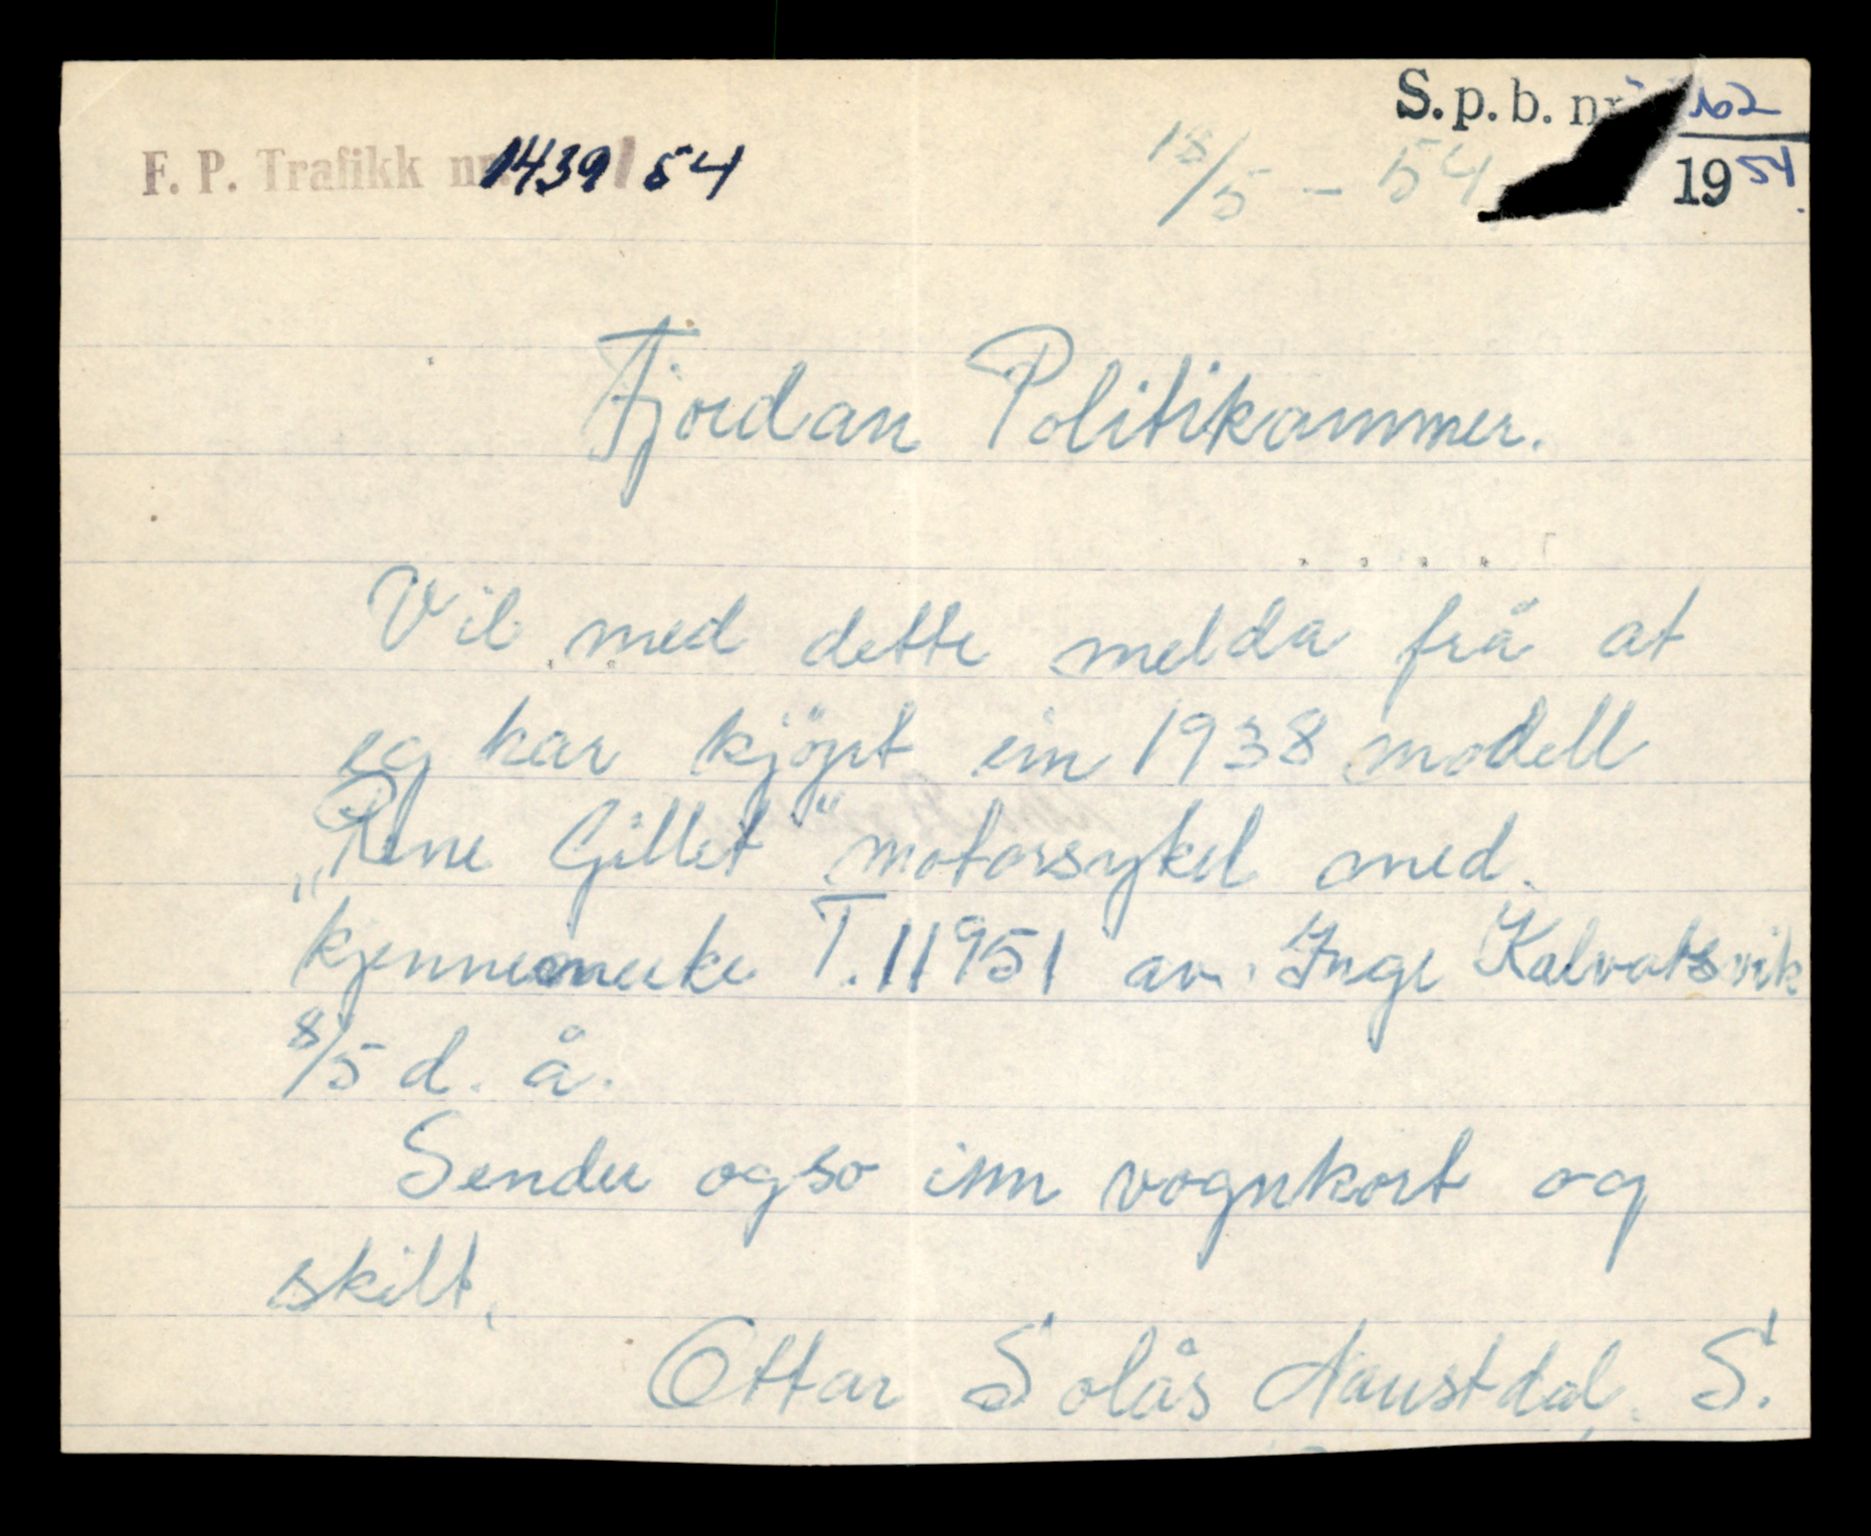 S. p. b. nr 62
F. P. Trafikk nr. 1439/54
18/5 - 54
1954
Fjordan Politikammer.
Vil med dette melda frå at
eg har kjöpt ein 1938 modell
„Rene Gillet" motorsykel med
kjennemerke T. 11951 av Inge Kalvatsvik
8/5 d. å.
Sender ogso inn vognkort og
skilt.
Ottar Solås Naustdal. S.